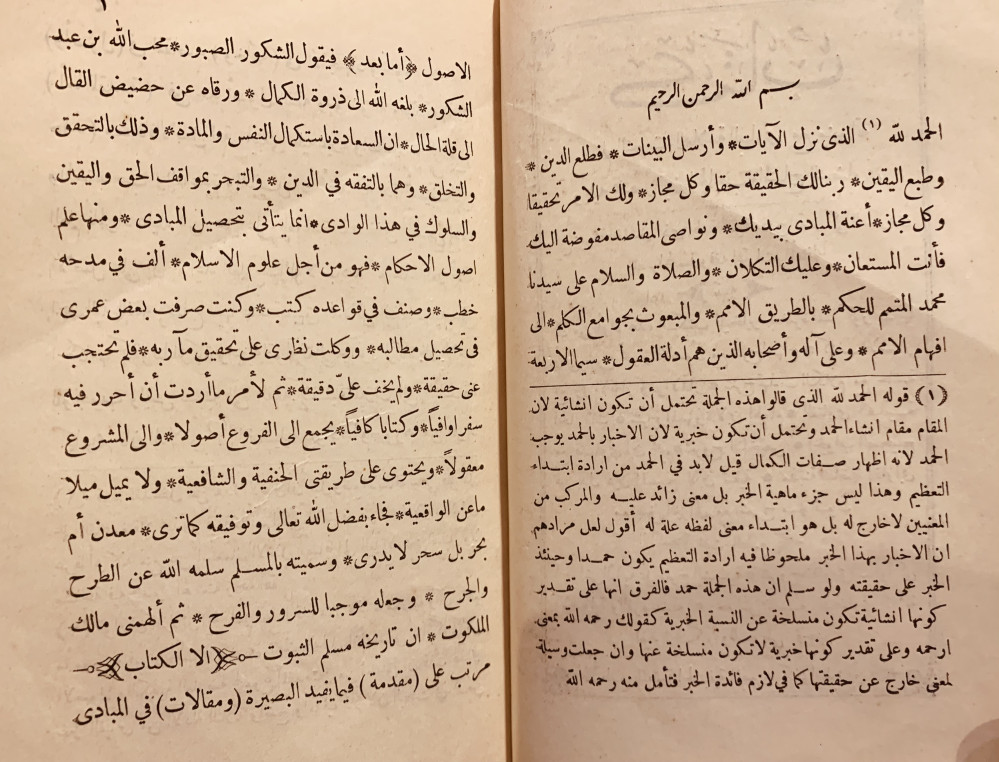 بسم الله الرحمن الرحيم
الحمد لله (١) الذى نزل الآيات* وأرسل البينات* فطلع الدين *
وطبع اليقين* ربنالك الحقيقة حقا وكل مجاز* ولك الامر تحقيقا
وكل مجاز* أعنة المبادى بيديك* ونواصى المقاصد مفوضة اليك
فأنت المستعان* وعليك التكلان *والصلاة والسلام على سيدنا
محمد المتمم للحكم* بالطريق الامم* والمبعوث بجوامع الكلم* الى
افهام الامم * وعلى آله وأصحابه الذين هم أدلة العقول* سيما الاربعة
(١) قوله الحمد لله الذى قالوا هذه الجملة تحتمل أن تكون انشائية لان
المقام مقام انشاء الحمد وتحتمل أن تكون خبرية لان الاخبار بالحمد يوجب
الحمد لانه اظهار صفات الكمال قيل لابد في الحمد من ارادة ابتداء
التعظيم وهذا ليس جزء ماهية الخبر بل معنى زائد عليه والمركب من
المعنيين لاخارج له بل هو ابتداء معنى لفظه علة له أقول لعل مرادهم
ان الاخبار بهذا الخبر ملحوظا فيه ارادة التعظيم يكون حمدا وحينئذ
الخبر على حقيقته ولو سلم ان هذه الجملة حمد فالفرق انها على تقدير
كونها انشائية تكون منسلخة عن النسبة الخبرية كقولك رحمه الله بمعنى
ارحمه وعلى تقدير كونها خبرية لاتكون منسلخة عنها وان جعلت وسيلة
لمعنى خارج عن حقيقتها كما في لازم فائدة الخبر فتأمل منه رحمه الله
الاصول (أما بعد) فيقول الشكور الصبور* محب الله بن عبد
الشكور* بلغه الله الى ذروة الكمال * ورقاه عن حضيض القال
الى قلة الحال* ان السعادة باستكمال النفس والمادة * وذلك بالتحقق
والتخلق* وهما بالتفقه في الدين * والتبحر بمواقف الحق واليقين
والسلوك في هذا الوادى* انما يتأتى بتحصيل المبادى *ومنها علم
اصول الاحكام *فهو من أجل علوم الاسلام* ألف في مدحه
خطب* وصنف في قواعده كتب* وكنت صرفت بعض عمرى
فى تحصيل مطالبه* ووكلت نظارى على تحقيق مآربه* فلم تحتجب
عنى حقيقة* ولم يخف علىّ دقيقة* ثم لأمر ما أردت أن أحرر فيه
سفرا وافياً* وكتابا كافياً* يجمع الى الفروع أصولا* والى المشروع
معقولاً* ويحتوى على طريقتى الحنفية والشافعية* ولا يميل ميلا
ماعن الواقعية* فجاء بفضل الله تعالى وتوفيقه كماترى* معدن أم
بحر بل سحر لايدرى* وسميته بالمسلم سلمه الله عن الطرح
والجرح * وجعله موجبا للسرور والفرح * ثم ألهمنى مالك
الملكوت * ان تاريخه مسلم الثبوت (الا الكتاب)
مرتب على (مقدمة) فيما يفيد البصيرة (ومقالات) في المبادى